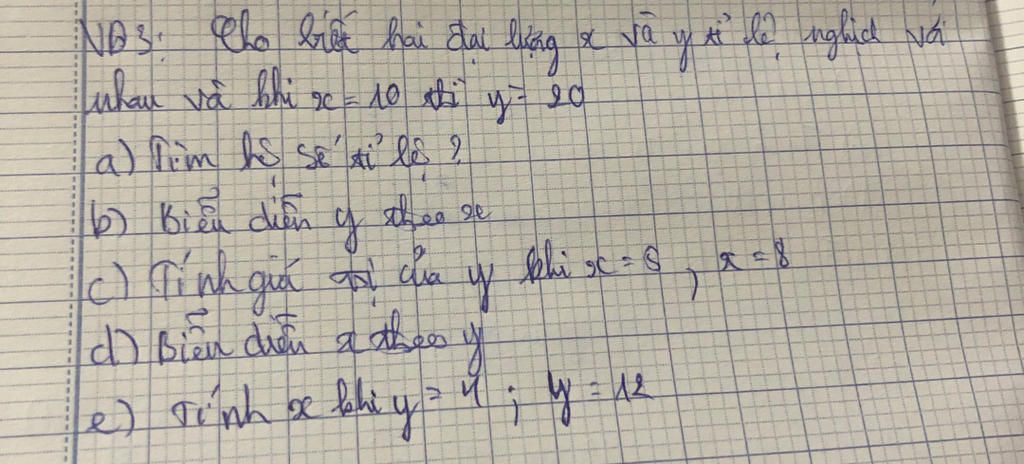 VD3: Cho biết hai đại lượng x và y tỉ lệ nghịch với
nhau và khi x = 10 thì y = 20
a) Tìm hệ số tỉ lệ ?
b) Biểu diễn y theo x
c) Tính giá trị của y khi x = , x = 8
d) Biểu diễn x theo y
e) Tính x khi y = 4 ; y = 12